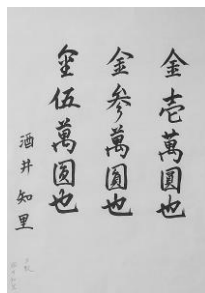 金壱萬圓也
金参萬圓也
金伍萬圓也
酒井知里